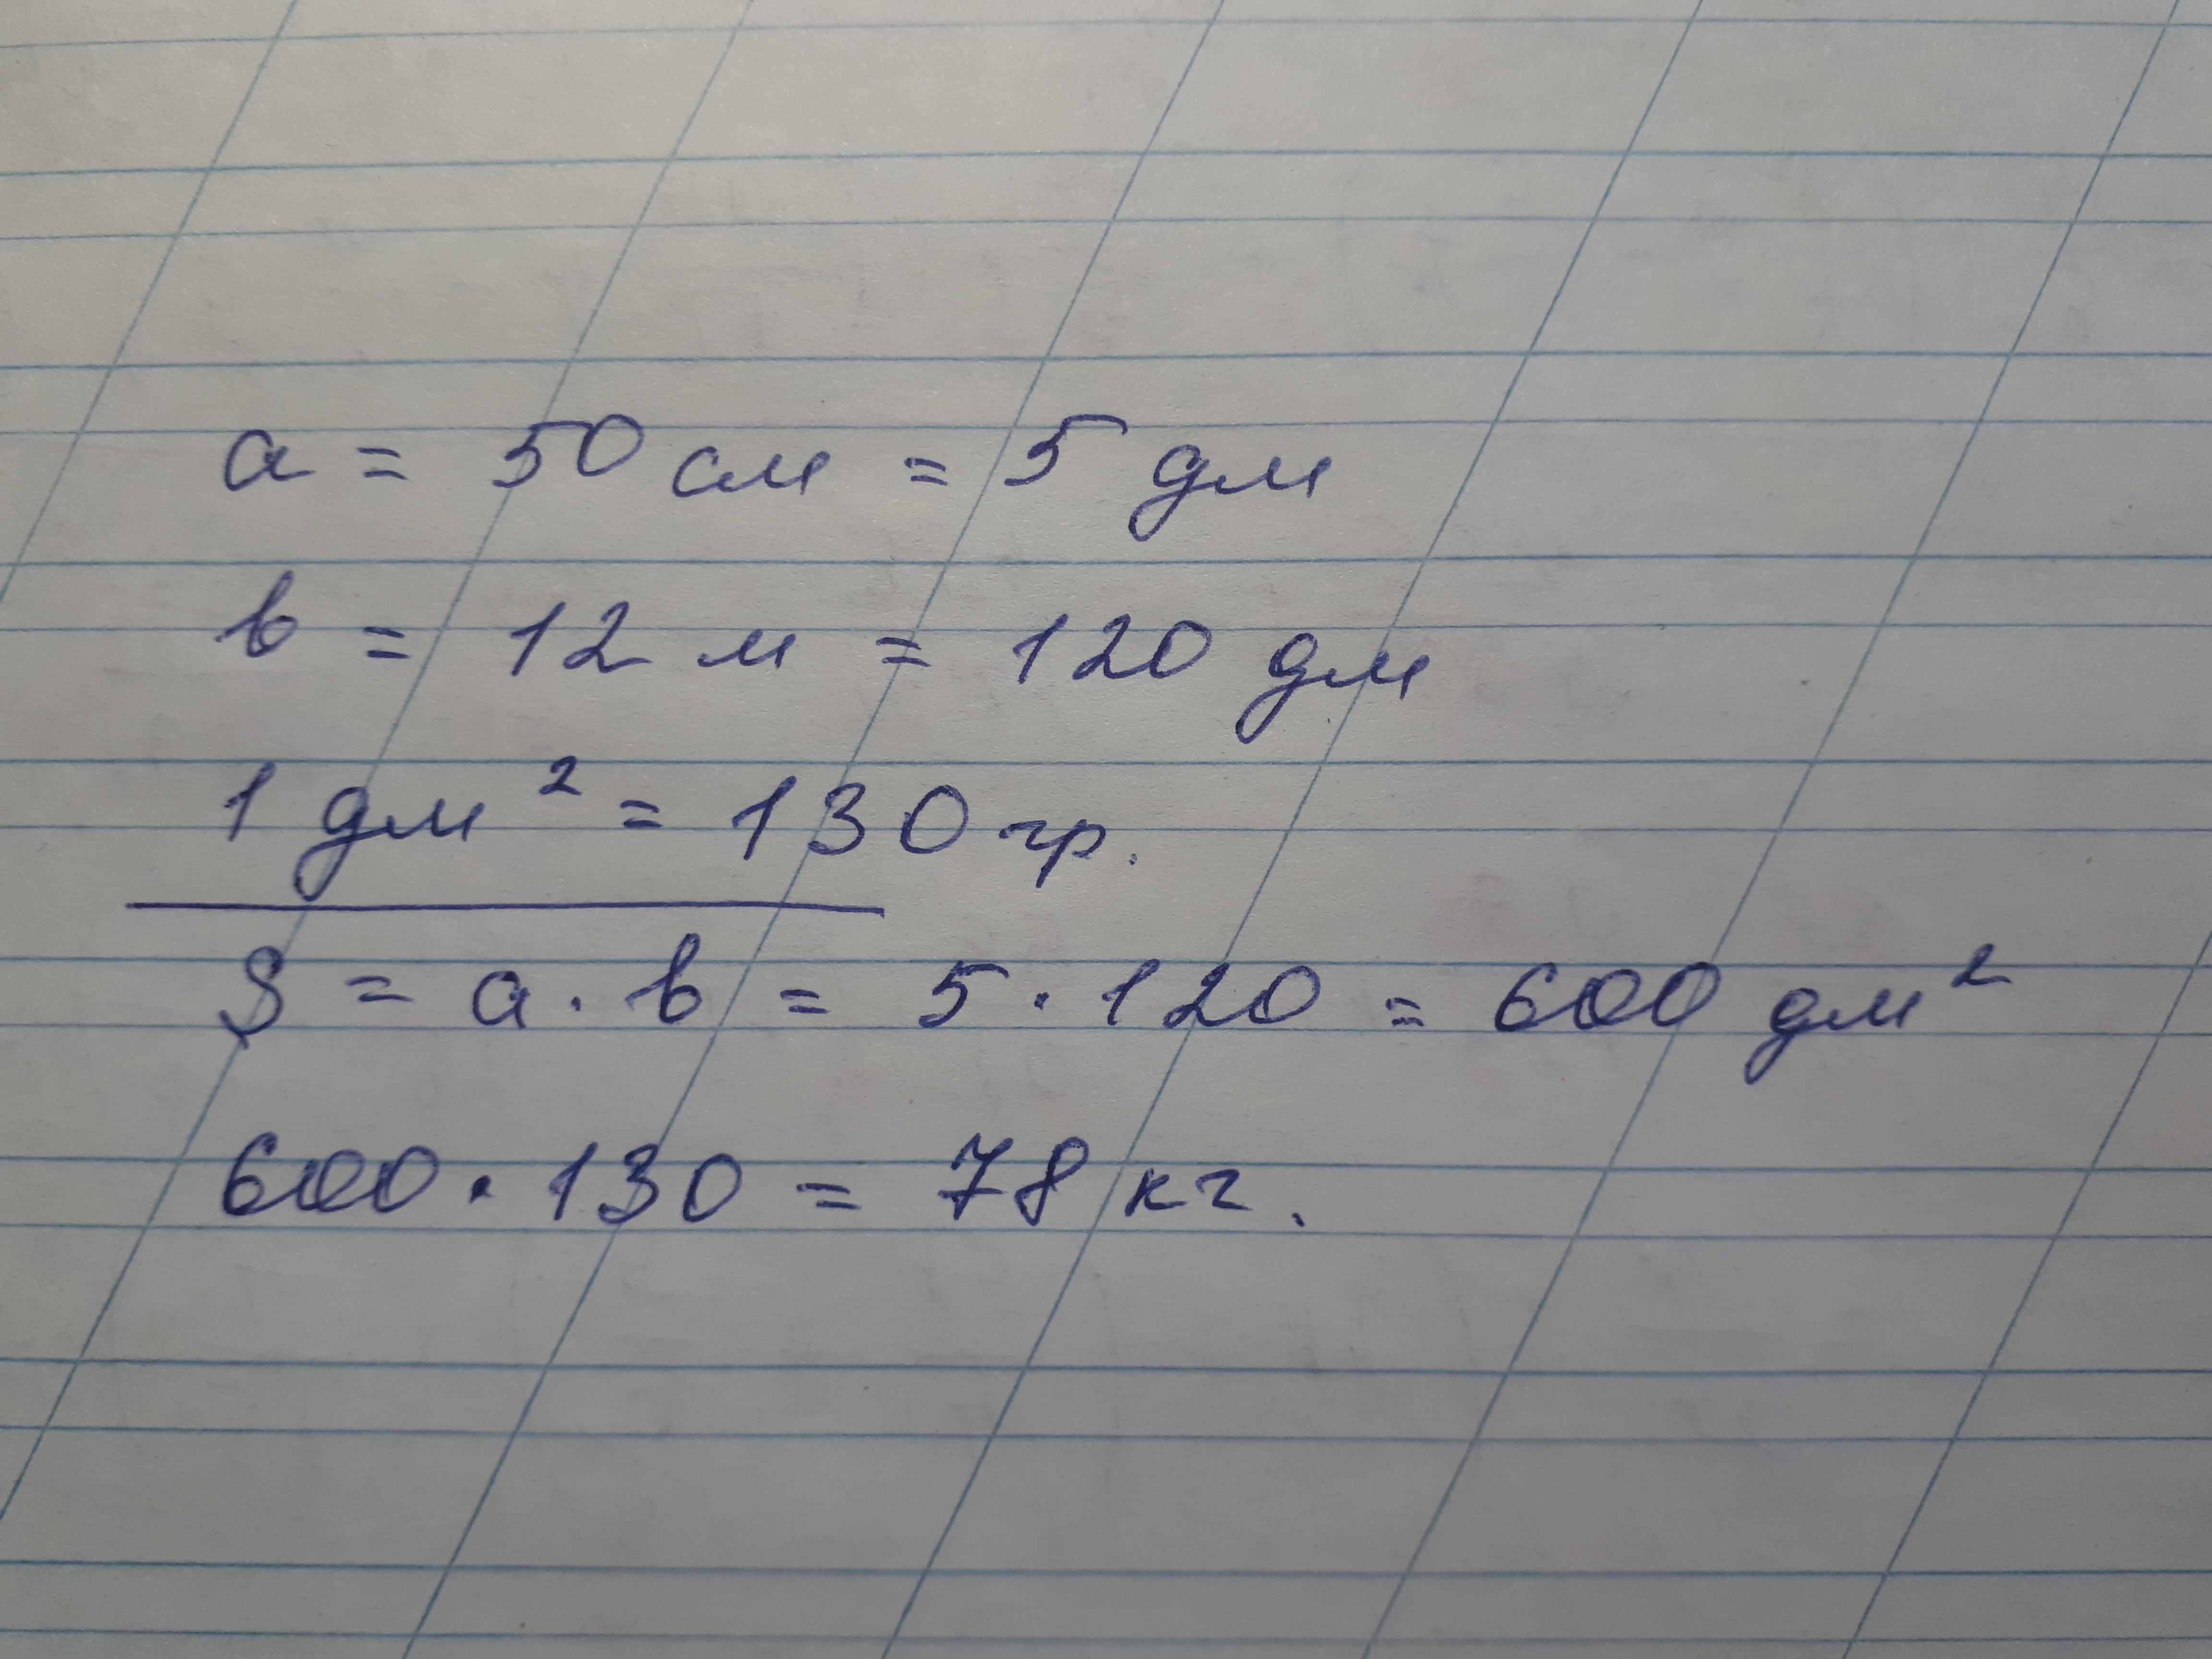 a = 50 см = 5 дм
b = 12 м = 120 дм
1 дм² = 130 гр.
S = a · b = 5 · 120 = 600 дм²
600 · 130 = 78 кг.